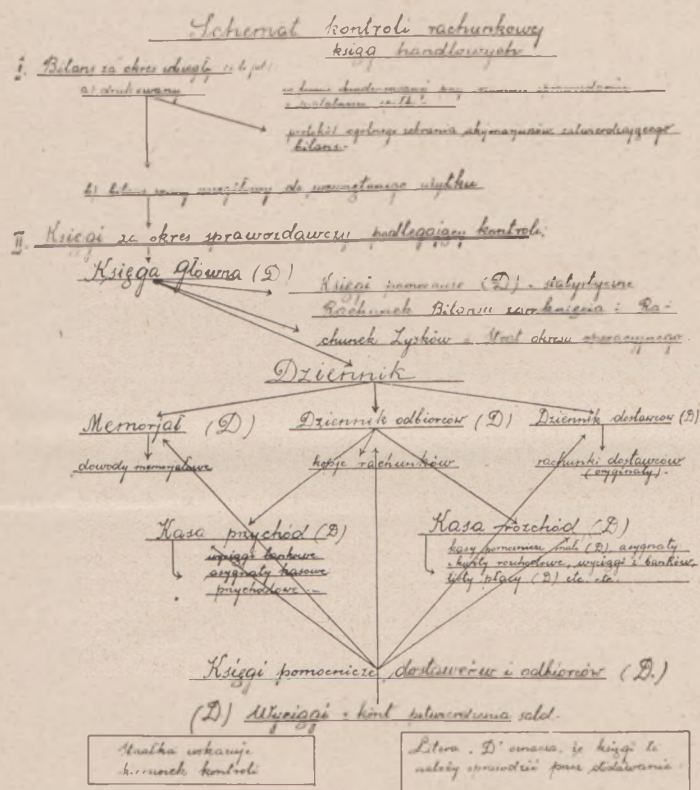 Schemat kontroli rachunkowej
ksiąg handlowych
I. Bilans za okres ubiegły
a) drukowany
protokół ogólnego zebrania akcjonariuszów zatwierdzającego
bilans.
b) bilans do wewnętrznego użytku
II. Księgi za okres sprawozdawczy podlegający kontroli:
Księga Główna (D)
Księgi pomocnicze (D) - statystyczne
Rachunek Bilansu zamknięcia i Ra-
chunek Zysków i Strat okresu operacyjnego.
Dziennik
Memorjał (D)
Dziennik odbiorców (D)
Dziennik dostawców (D)
dowody memorjałowe
kopje rachunków
rachunki dostawców
(oryginały).
Kasa przychód (D)
wyciągi bankowe
asygnaty kasowe
przychodowe
Kasa rozchód (D)
kasy pomocnicze małe (D), asygnaty
rozchodowe, wyciągi z banków,
listy płacy (D) etc. etc.
Księgi pomocnicze dostawców i odbiorców (D.)
(D) Wyciągi z kont potwierdzenia sald.
Strzałka wskazuje
kierunek kontroli
Litera "D" oznacza, że księgi te
należy sprawdzić przez dodawanie